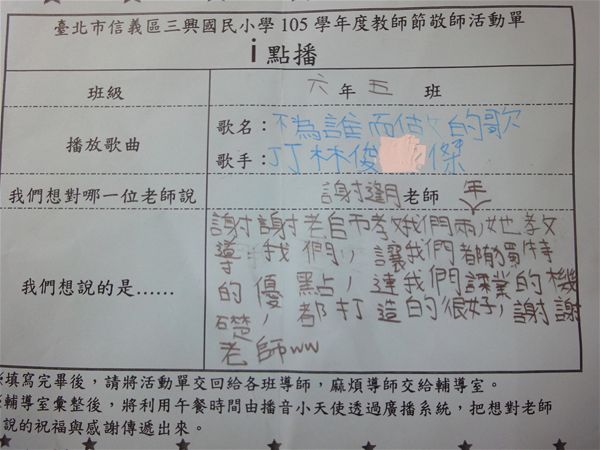 臺北市信義區三興國民小學 105 學年度教師節敬師活動單
i 點播
班級 六 年 五 班
播放歌曲
歌名：不為誰而做的歌
歌手：JJ 林俊傑
我們想對哪一位老師說 謝 老師
我們想說的是……
謝謝老師教我們兩年，她教
導我們，讓我們都有獨特
的優點，連我們課業的機
礎，都打造的很好，謝謝
老師ww
填寫完畢後，請將活動單交回給各班導師，麻煩導師交給輔導室。
輔導室彙整後，將利用午餐時間由播音小天使透過廣播系統，把想對老師
說的祝福與感謝傳遞出來。